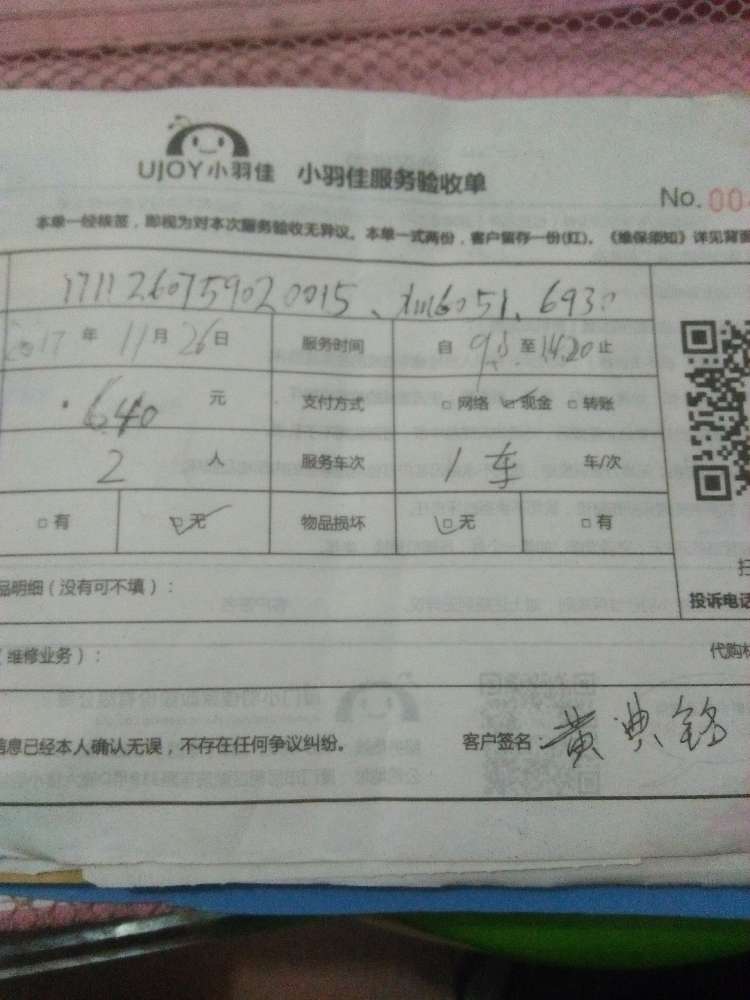 UJOY小羽佳 小羽佳服务验收单
No. 00
本单一经核签，即视为对本次服务验收无异议。本单一式两份，客户留存一份(红)。《维保须知》详见背面
1711260759020015、xm6051、6930
2017年11月26日 服务时间 自 9 至 14:20 止
640 元 支付方式 □网络 □现金 □转账
2 人 服务车次 1车 车/次
□有 □无 物品损坏 □无 □有
品明细（没有可不填）：
投诉电话
（维修业务）： 代购材
信息已经本人确认无误，不存在任何争议纠纷。 客户签名：黄典铭